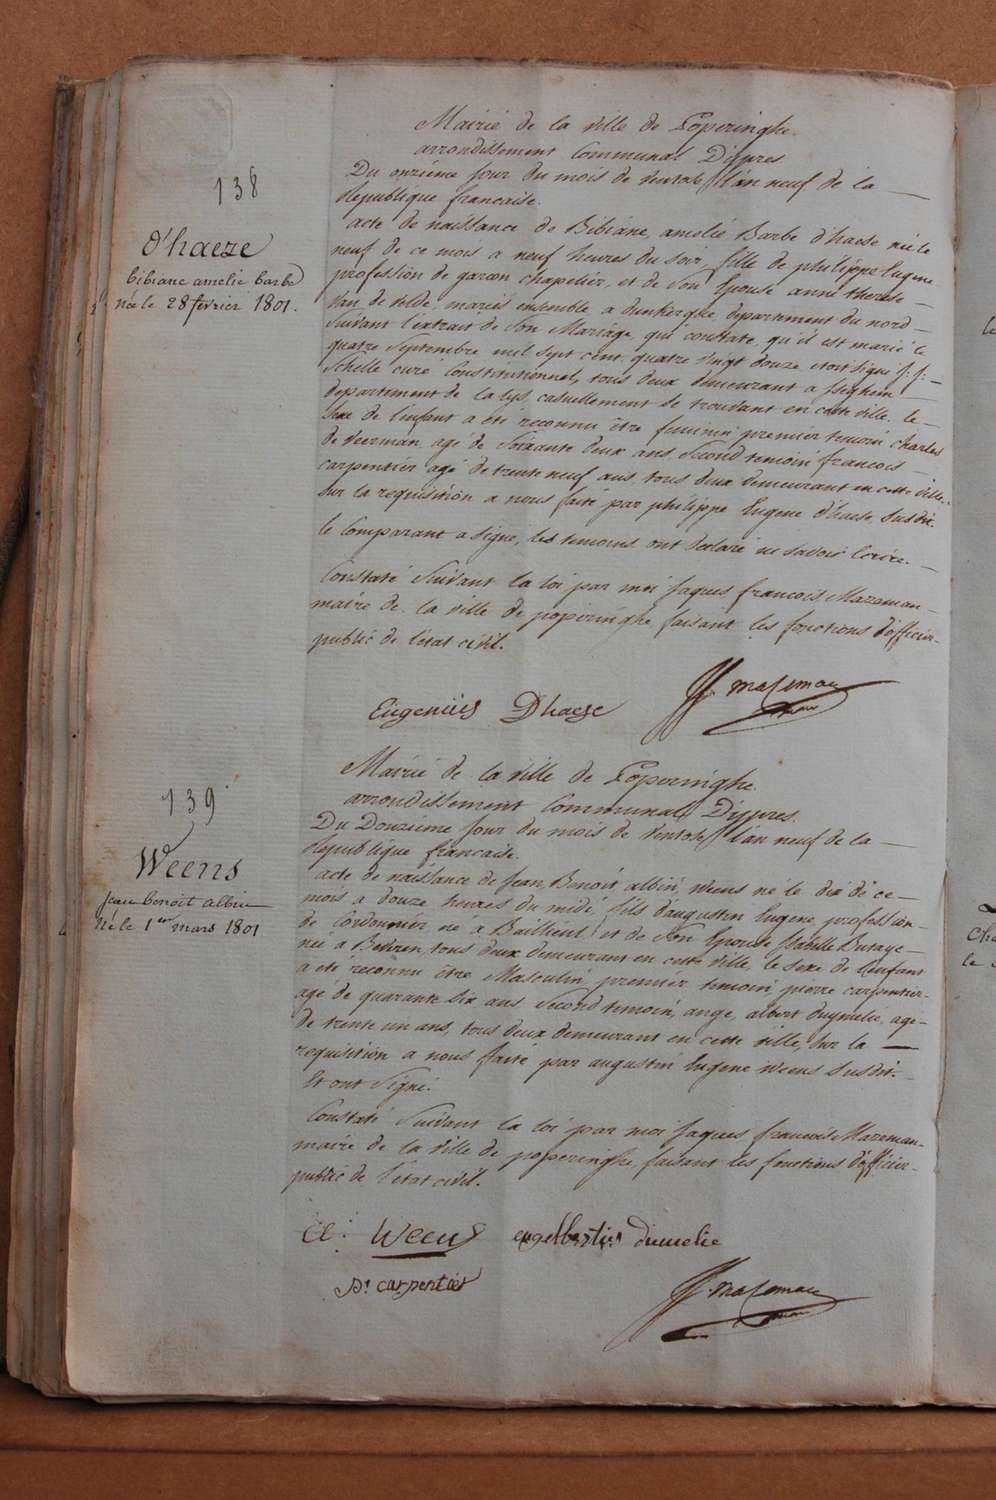 138
D'haeze
bibiane amelie barbe
née le 28 fevrier 1801.
Mairie de la ville de Poperinghe
arrondissement Communal D'ijpres.
Du onzieme jour du mois de ventose l'an neuf de la
Republique francaise.
acte de naissance de Bibiane, amelie Barbe d'haese née le
neuf de ce mois a neuf heures du soir, fille de philippe Eugene
profession de garcon chapelier, et de son Epouse anne therese
Van de velde, mariés ensemble a dunkerghe departement du nord
suivant l'extrait de son Mariage, qui constate, qu'il est marié le
quatre septembre mil sept cent quatre vingt douze, etoit signé j: j:
Schelle curé Constitutionnel, tous deux demeurant a Iseghem
departement de la lys, casuellement se trouvant en cette ville, le
sexe de l'enfant a été reconnu être feminin premier temoin charles
de veerman agé de soixante deux ans second temoin francois
carpentier agé de trente neuf ans, tous deux demeurant en cette ville
sur la requisition a nous faite par philippe Eugene d'haese susdit
le Comparant a signé, les temoins ont declaré ne savoir Ecrire.
Constaté suivant la loi par moi jaques francois Mazeman
maire de la ville de poperinghe, faisant les fonctions d'officier
public de l'etat civil.
Eugeniüs Dhaese
JF. mazeman
139
Weens
jean benoit albin
Né le 1er mars 1801
Mairie de la ville de Poperinghe.
arrondissement Communal D'ijpres.
Du Douzieme jour du mois de Ventose l'an neuf de la
Republique francaise.
acte de naissance de Jean, Benoit, albin, weens né le dix de ce
mois a douze heures du midi, fils d'augustin Eugene, profession
de Cordonnier né a Bailleul, et de son Epouse Isabelle Dutaye
née a Bevren, tous deux demeurant en cette ville, le sexe de l'enfant
a été reconnu être Masculin, premier temoin, pierre carpentier
agé de quarante six ans second temoin, ange, albert duymelie, agé
de trente un ans, tous deux demeurant en cette ville, sur la
requisition a nous faite par augustin Eugene weens susdit.
Et ont signé.
Constaté suivant la loi par moi jaques francois Mazeman
maire de la ville de poperinghe, faisant les fonctions d'officier
public de l'etat civil.
Weens dumelie
P: carpentier
JF. mazeman